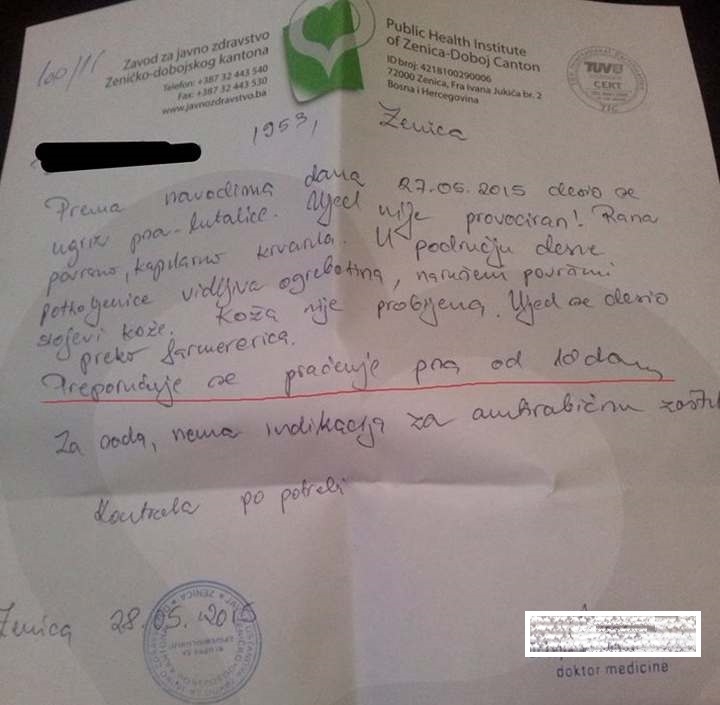 100/15
Zavod za javno zdravstvo
Zeničko-dobojskog kantona
Telefon: +387 32 443 540
Fax: +387 32 443 530
www.javnozdravstvo.ba
Public Health Institute
of Zenica-Doboj Canton
ID broj: 4218100290006
72000 Zenica, Fra Ivana Jukića br. 2
Bosna i Hercegovina
TUV
CERT
TIC
1953, Zenica
Prema navodima dana 27.05.2015 desio se
ugriz psa-lutalice. Ujed nije provociran! Rana
površno, kapilarno krvarila. U području desne
potkoljenice vidljiva ogrebotina, narušeni površni
slojevi kože. Koža nije probijena. Ujed se desio
preko farmererica.
Preporučuje se praćenje psa od 10 dana
Za sada, nema indikacija za antirabičnu zaštit
Kontrola po potrebi
Zenica 28.05.2015
doktor medicine